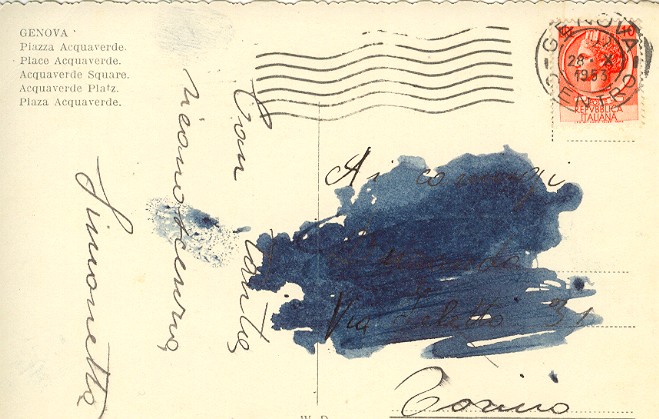 GENOVA
Piazza Acquaverde.
Place Acquaverde.
Acquaverde Square.
Acquaverde Platz.
Plaza Acquaverde.
GENOVA
28 · X
1953
CENTRO
REPVBBLICA
ITALIANA
Con tanta
riconoscenza
Simonetta
Ai coniugi
Via
31
Torino